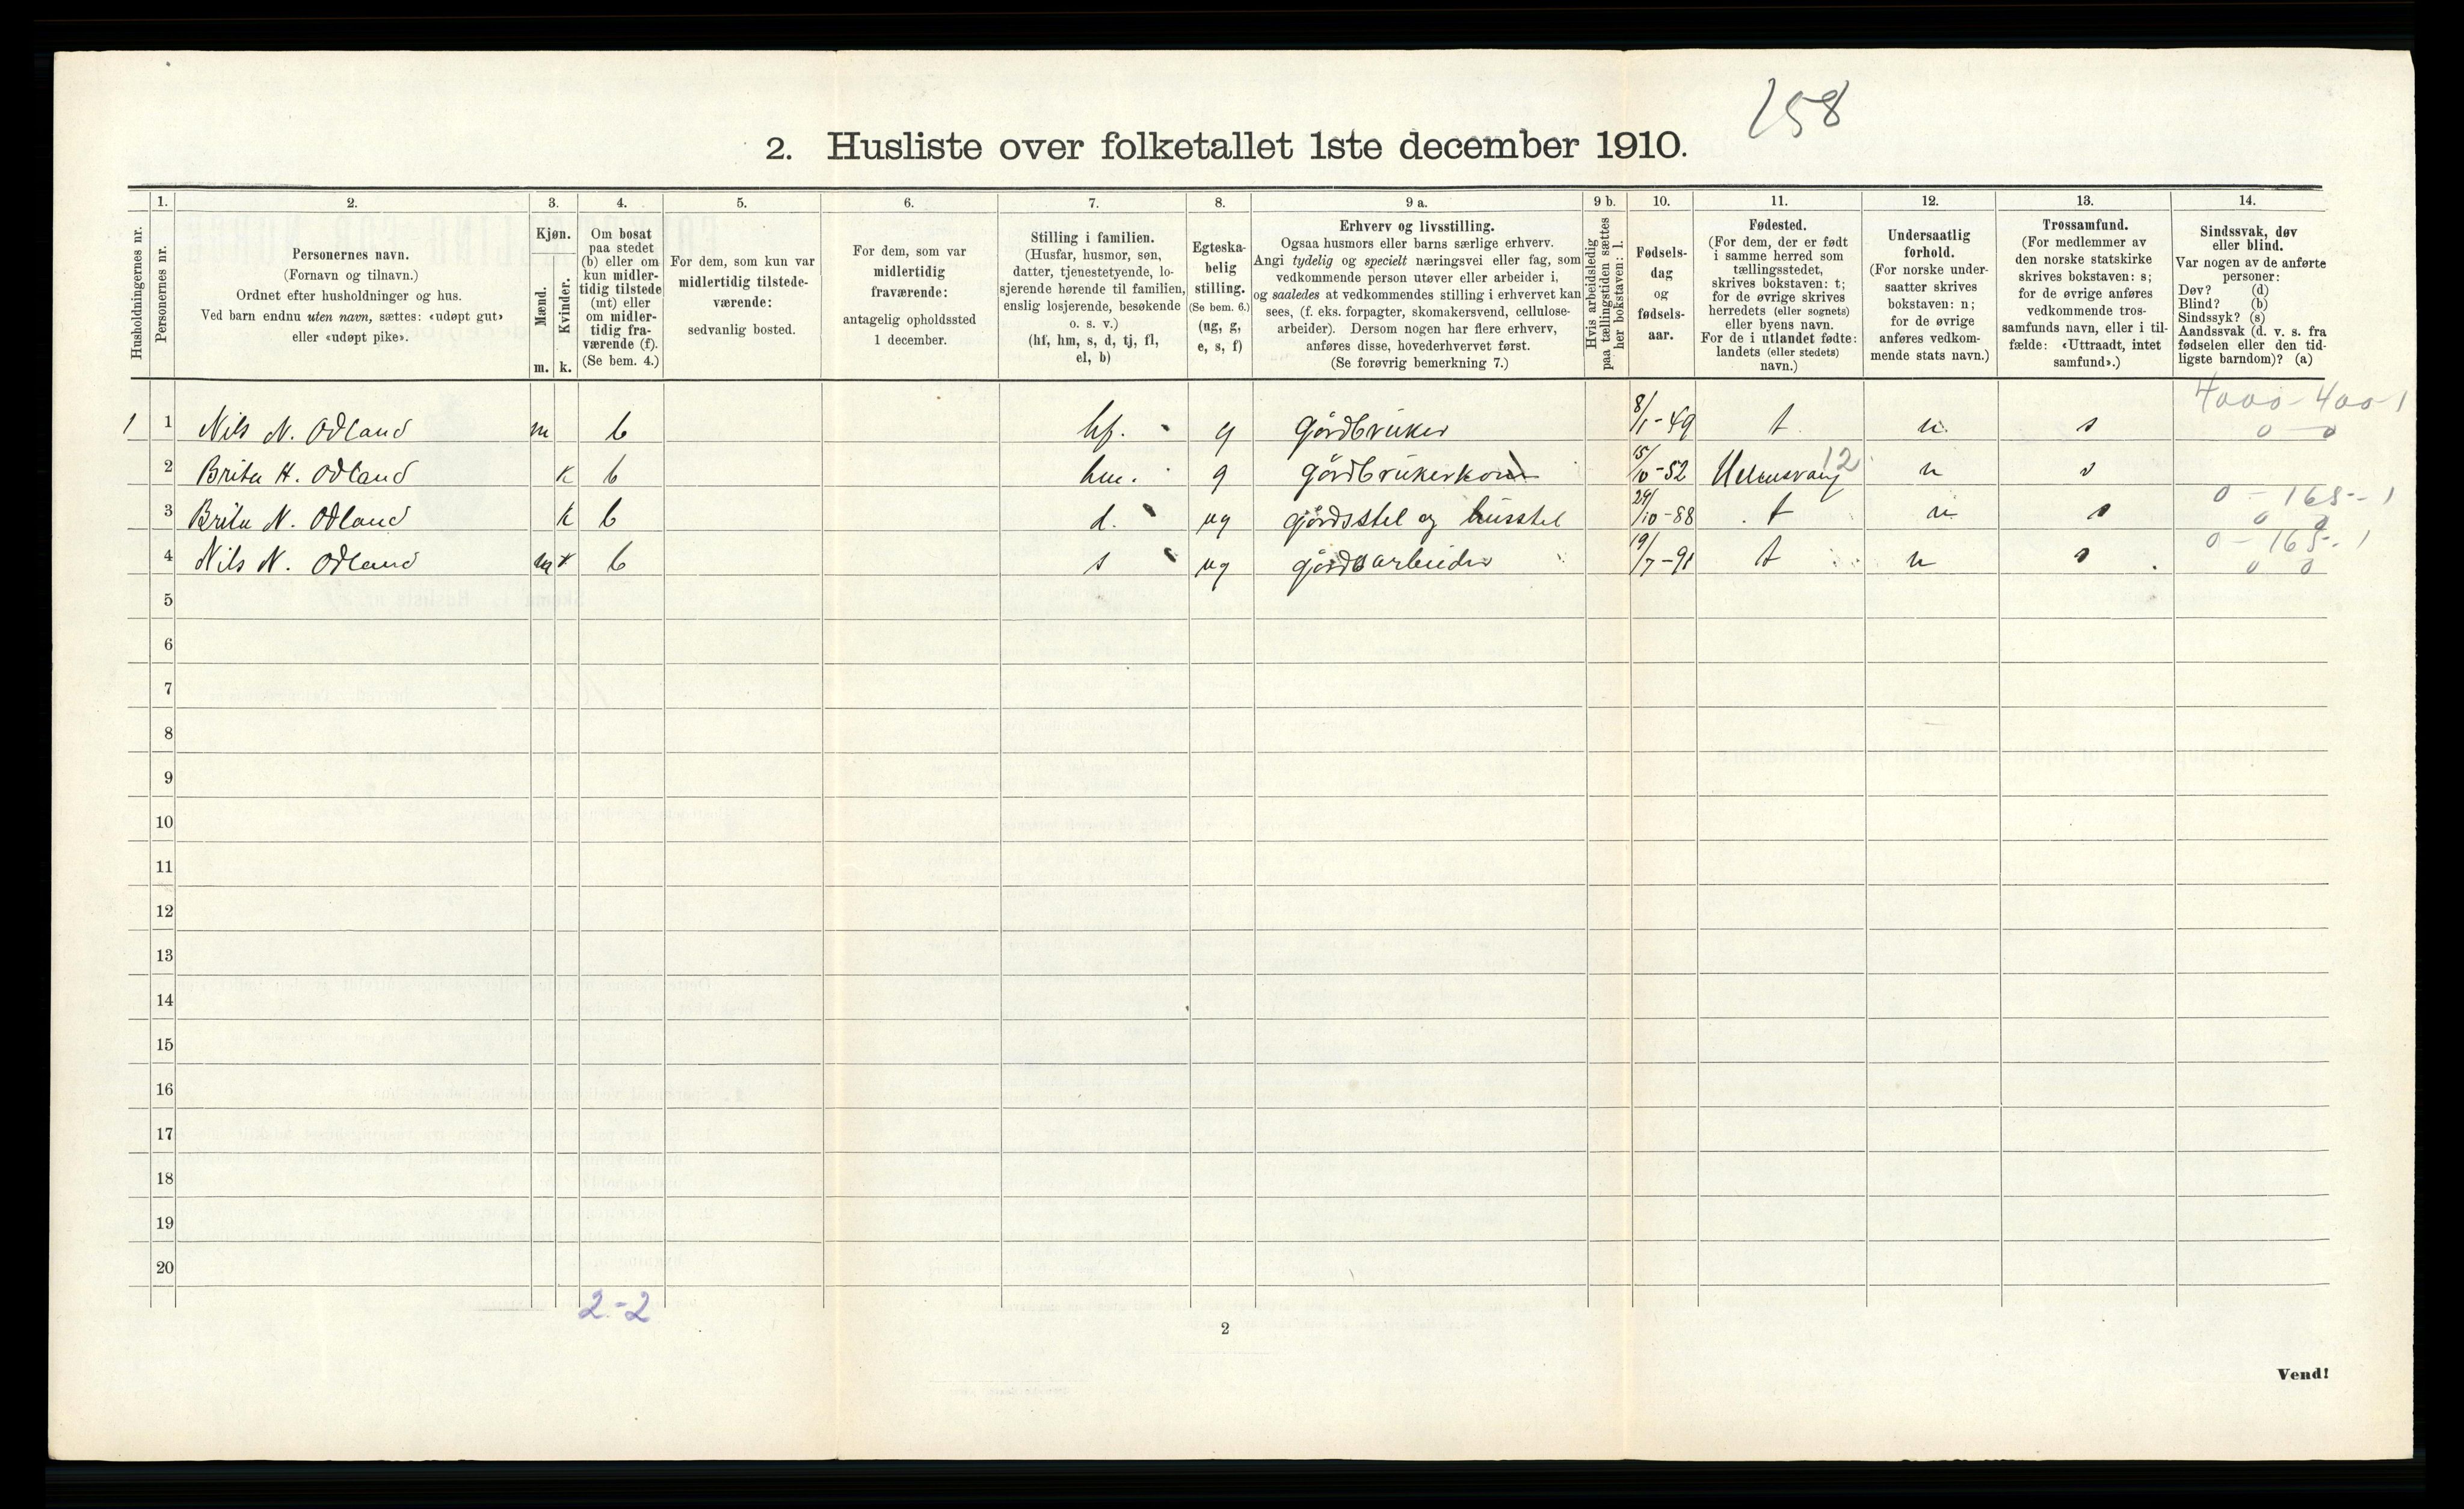 158
2. Husliste over folketallet 1ste december 1910.
Husholdningernes nr.
1.
Personernes nr.
2.
Personernes navn.
(Fornavn og tilnavn.)
Ordnet efter husholdninger og hus.
Ved barn endnu uten navn, sættes: «udøpt gut»
eller «udøpt pike».
3.
Kjøn.
Mænd.
Kvinder.
m. k.
4.
Om bosat
paa stedet
(b) eller om
kun midler-
tidig tilstede
(mt) eller
om midler-
tidig fra-
værende (f).
(Se bem. 4.)
5.
For dem, som kun var
midlertidig tilstede-
værende:
sedvanlig bosted.
6.
For dem, som var
midlertidig
fraværende:
antagelig opholdssted
1 december.
7.
Stilling i familien.
(Husfar, husmor, søn,
datter, tjenestetyende, lo-
sjerende hørende til familien,
enslig losjerende, besøkende
o. s. v.)
(hf, hm, s, d, tj, fl,
el, b)
8.
Egteska-
belig
stilling.
(Se bem. 6.)
(ug, g,
e, s, f)
9 a.
Erhverv og livsstilling.
Ogsaa husmors eller barns særlige erhverv.
Angi tydelig og specielt næringsvei eller fag, som
vedkommende person utøver eller arbeider i,
og saaledes at vedkommendes stilling i erhvervet kan
sees, (f. eks. forpagter, skomakersvend, cellulose-
arbeider). Dersom nogen har flere erhverv,
anføres disse, hovederhvervet først.
(Se forøvrig bemerkning 7.)
9 b.
Hvis arbeidsledig
paa tællingstiden sættes
her bokstaven: l.
10.
Fødsels-
dag
og
fødsels-
aar.
11.
Fødested.
(For dem, der er født
i samme herred som
tællingsstedet,
skrives bokstaven: t;
for de øvrige skrives
herredets (eller sognets)
eller byens navn.
For de i utlandet fødte:
landets (eller stedets)
navn.)
12.
Undersaatlig
forhold.
(For norske under-
saatter skrives
bokstaven: n;
for de øvrige
anføres vedkom-
mende stats navn.)
13.
Trossamfund.
(For medlemmer av
den norske statskirke
skrives bokstaven: s;
for de øvrige anføres
vedkommende tros-
samfunds navn, eller i til-
fælde: «Uttraadt, intet
samfund».)
14.
Sindssvak, døv
eller blind.
Var nogen av de anførte
personer:
Døv? (d)
Blind? (b)
Sindssyk? (s)
Aandssvak (d. v. s. fra
fødselen eller den tid-
ligste barndom)? (a)
4000-400-1
1 1 Nils N. Odland m b hf. g gårdbruker 8/1-49 t n s 0 0
2 Brita H. Odland k b hm. g gårdbrukerkone 15/10-52 12 n s
0-165-1
3 Brita N. Odland k b d. ug gårdsstel og husstel 29/10-88 t n s 0 0
0-165-1
4 Nils N. Odland m b s ug gårdsarbeider 19/7-91 t n s 0 0
5
6
7
8
9
10
11
12
13
14
15
16
17
18
19
20
2-2
2
Vend!